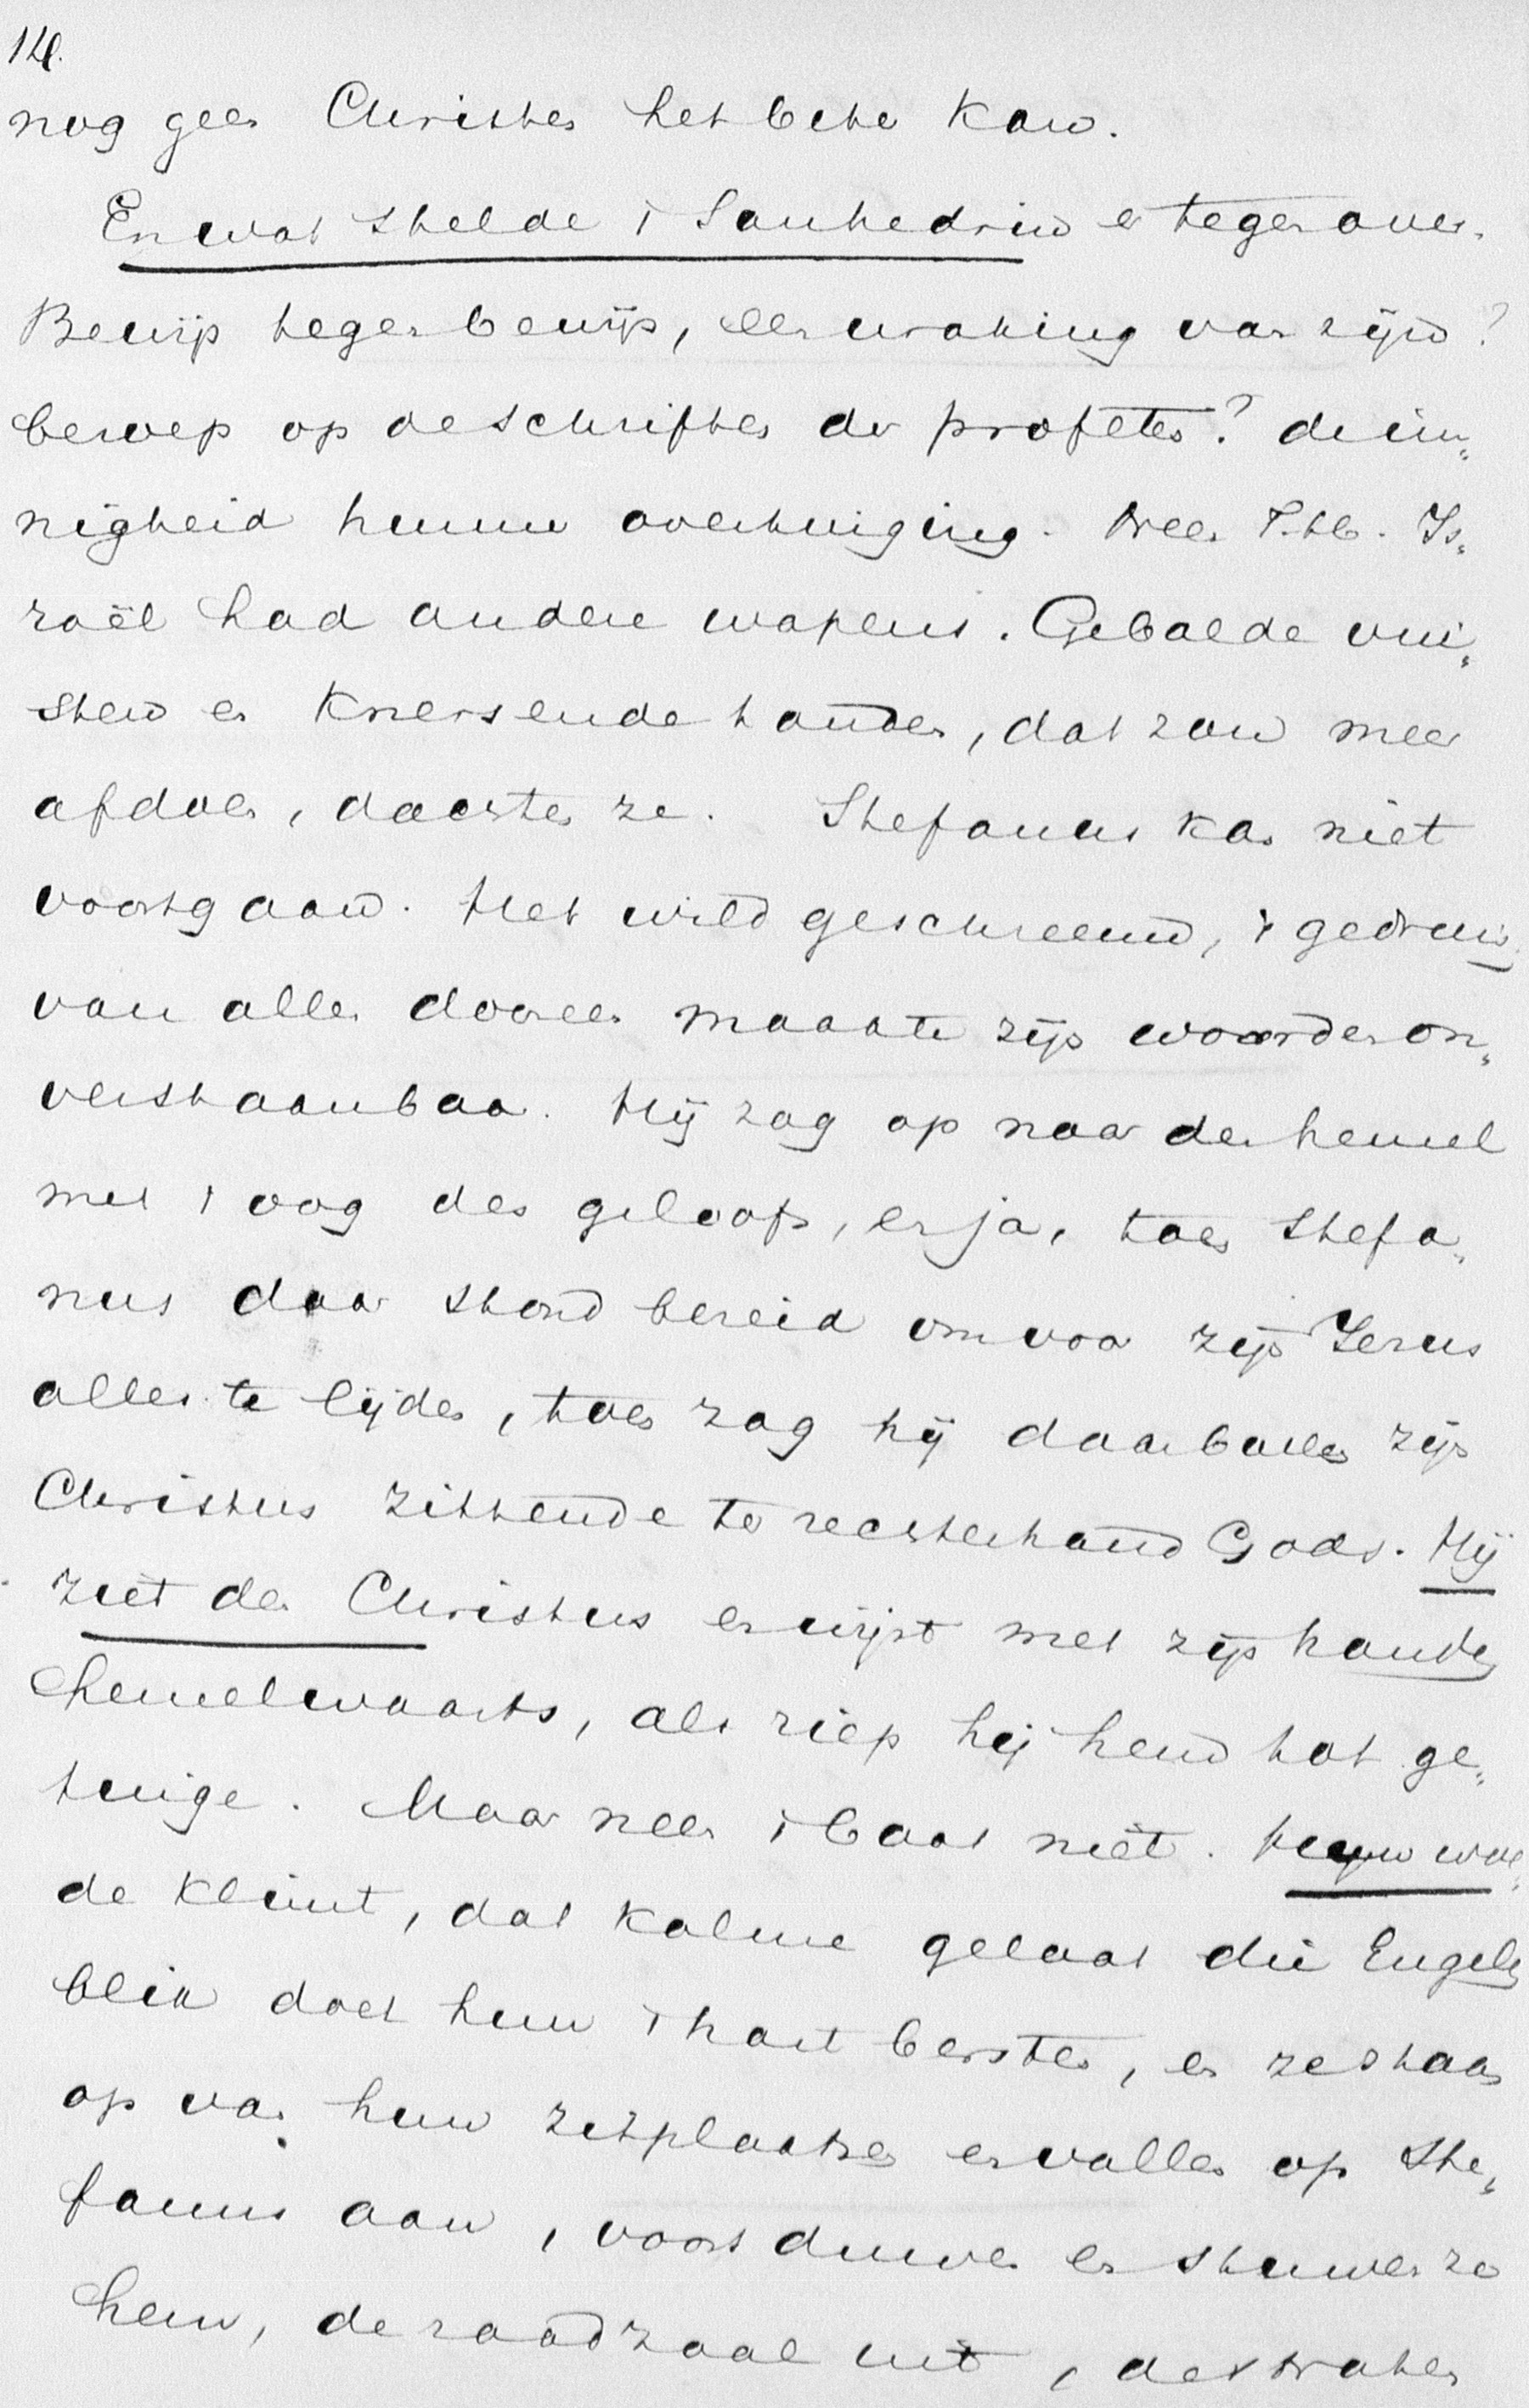 14.
nog geen Christen het beter kan.
En wat stelde 't Sanhedrin er tegenover.
Bewijs tegen bewijs, een wraking van zijn?
beroep op de schriften der profeten? de in„
nigheid hunner overtuiging. Neen T. Is„
raël had andere wapens. Gebalde vui„
sten en knersende tanden, dat zou meer
afdoen, dachten ze. Stefanus kan niet
voortgaan. Het wild geschreeuw, 't gedruis
van allen dooreen maakte zijn woorden on„
verstaanbaar. Hij zag op naar den hemel
met 't oog des geloofs, en ja, toen Stefa„
nus daar stond bereid om voor zijn Jezus
alles te lijden, toen zag hij daarboven zijn
Christus zittende ter rechterhand Gods. Hij
ziet den Christus en wijst met zijn handen
hemelwaarts, als riep hij hem tot ge„
tuige. Maar neen 't baat niet. Hun woe„
de klimt, dat kalme gelaat die Engelen
blik doet hun 't hart bersten, en ze staan
op van hun zitplaatsen en vallen op Ste„
fanus aan, voort duwen en stuwen ze
hem, de raadzaal uit, de straten